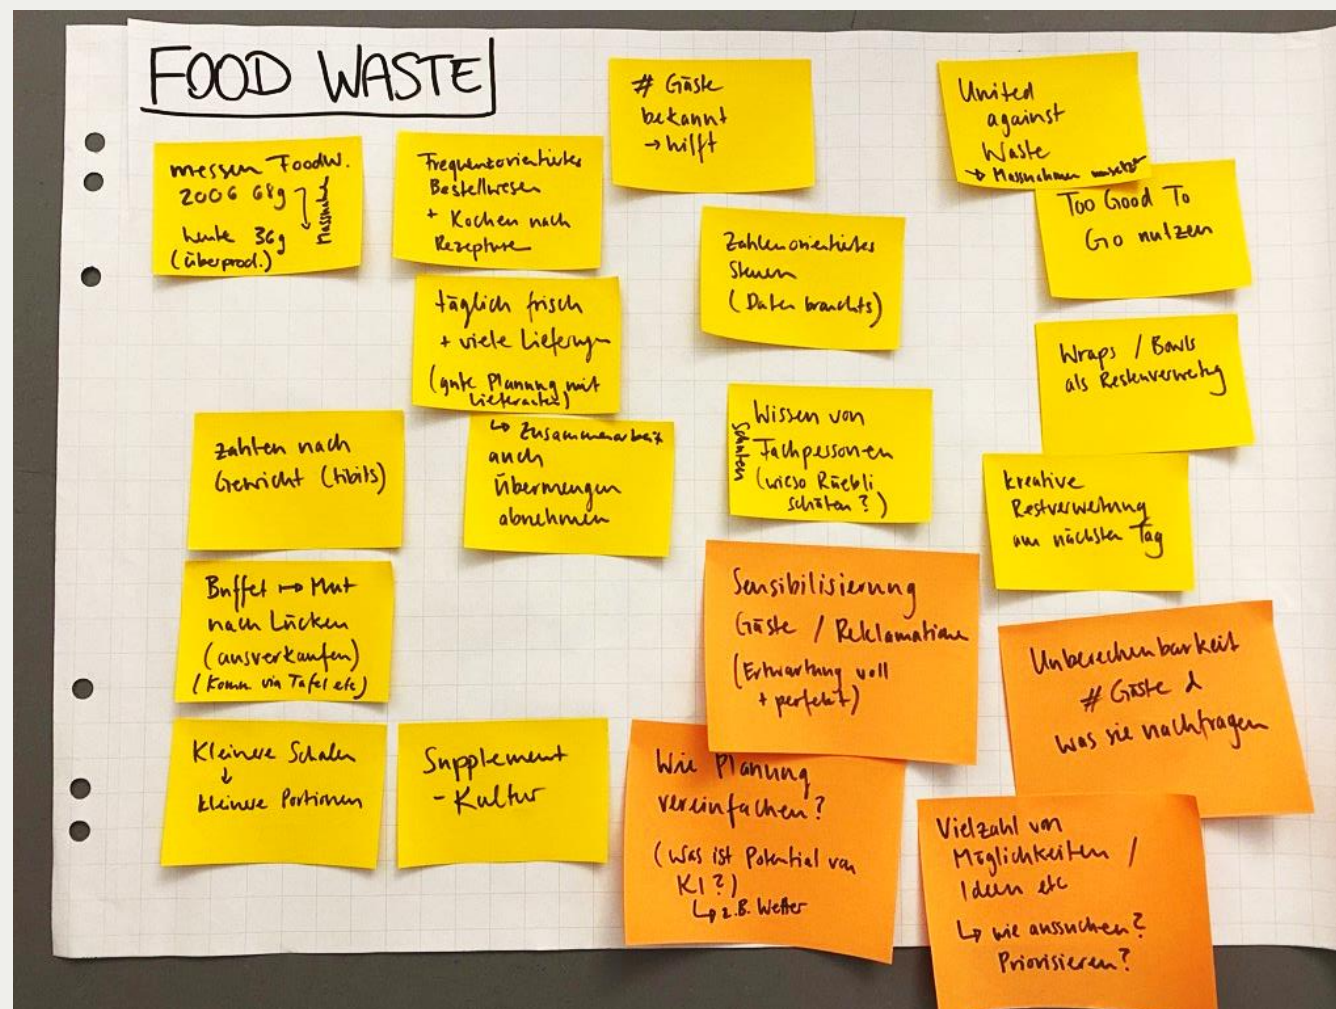 FOOD WASTE
messen Foodw.
2006 68g
heute 36g
(überprod.)
Massnahmen
Frequenzorientiertes
Bestellwesen
+ Kochen nach
Rezepturen
# Gäste
bekannt
→ hilft
United
against
Waste
→ Massnahmen umsetzen
Too Good To
Go nutzen
täglich frisch
+ viele Lieferungen
(gute Planung mit
Lieferanten)
Zahlenorientiertes
Steuern
(Daten brauchts)
Wraps / Bowls
als Restenverwertg
zahlen nach
Gewicht (tibits)
↳ Zusammenarbeit
auch
Übermengen
abnehmen
Schulen
Wissen von
Fachpersonen
(wieso Rüebli
schälen?)
kreative
Restverwertung
am nächsten Tag
Buffet ↦ Mut
nach Lücken
(ausverkaufen)
(Komm via Tafel etc)
Sensibilisierung
Gäste / Reklamationen
(Erwartung voll
+ perfekt)
Unberechenbarkeit
# Gäste &
was sie nachfragen
Kleinere Schalen
↓
kleinere Portionen
Supplement
- Kultur
Wie Planung
vereinfachen?
(Was ist Potential von
KI?)
↳ z.B. Wetter
Vielzahl von
Möglichkeiten /
Ideen etc
↳ wie aussuchen?
Priorisieren?